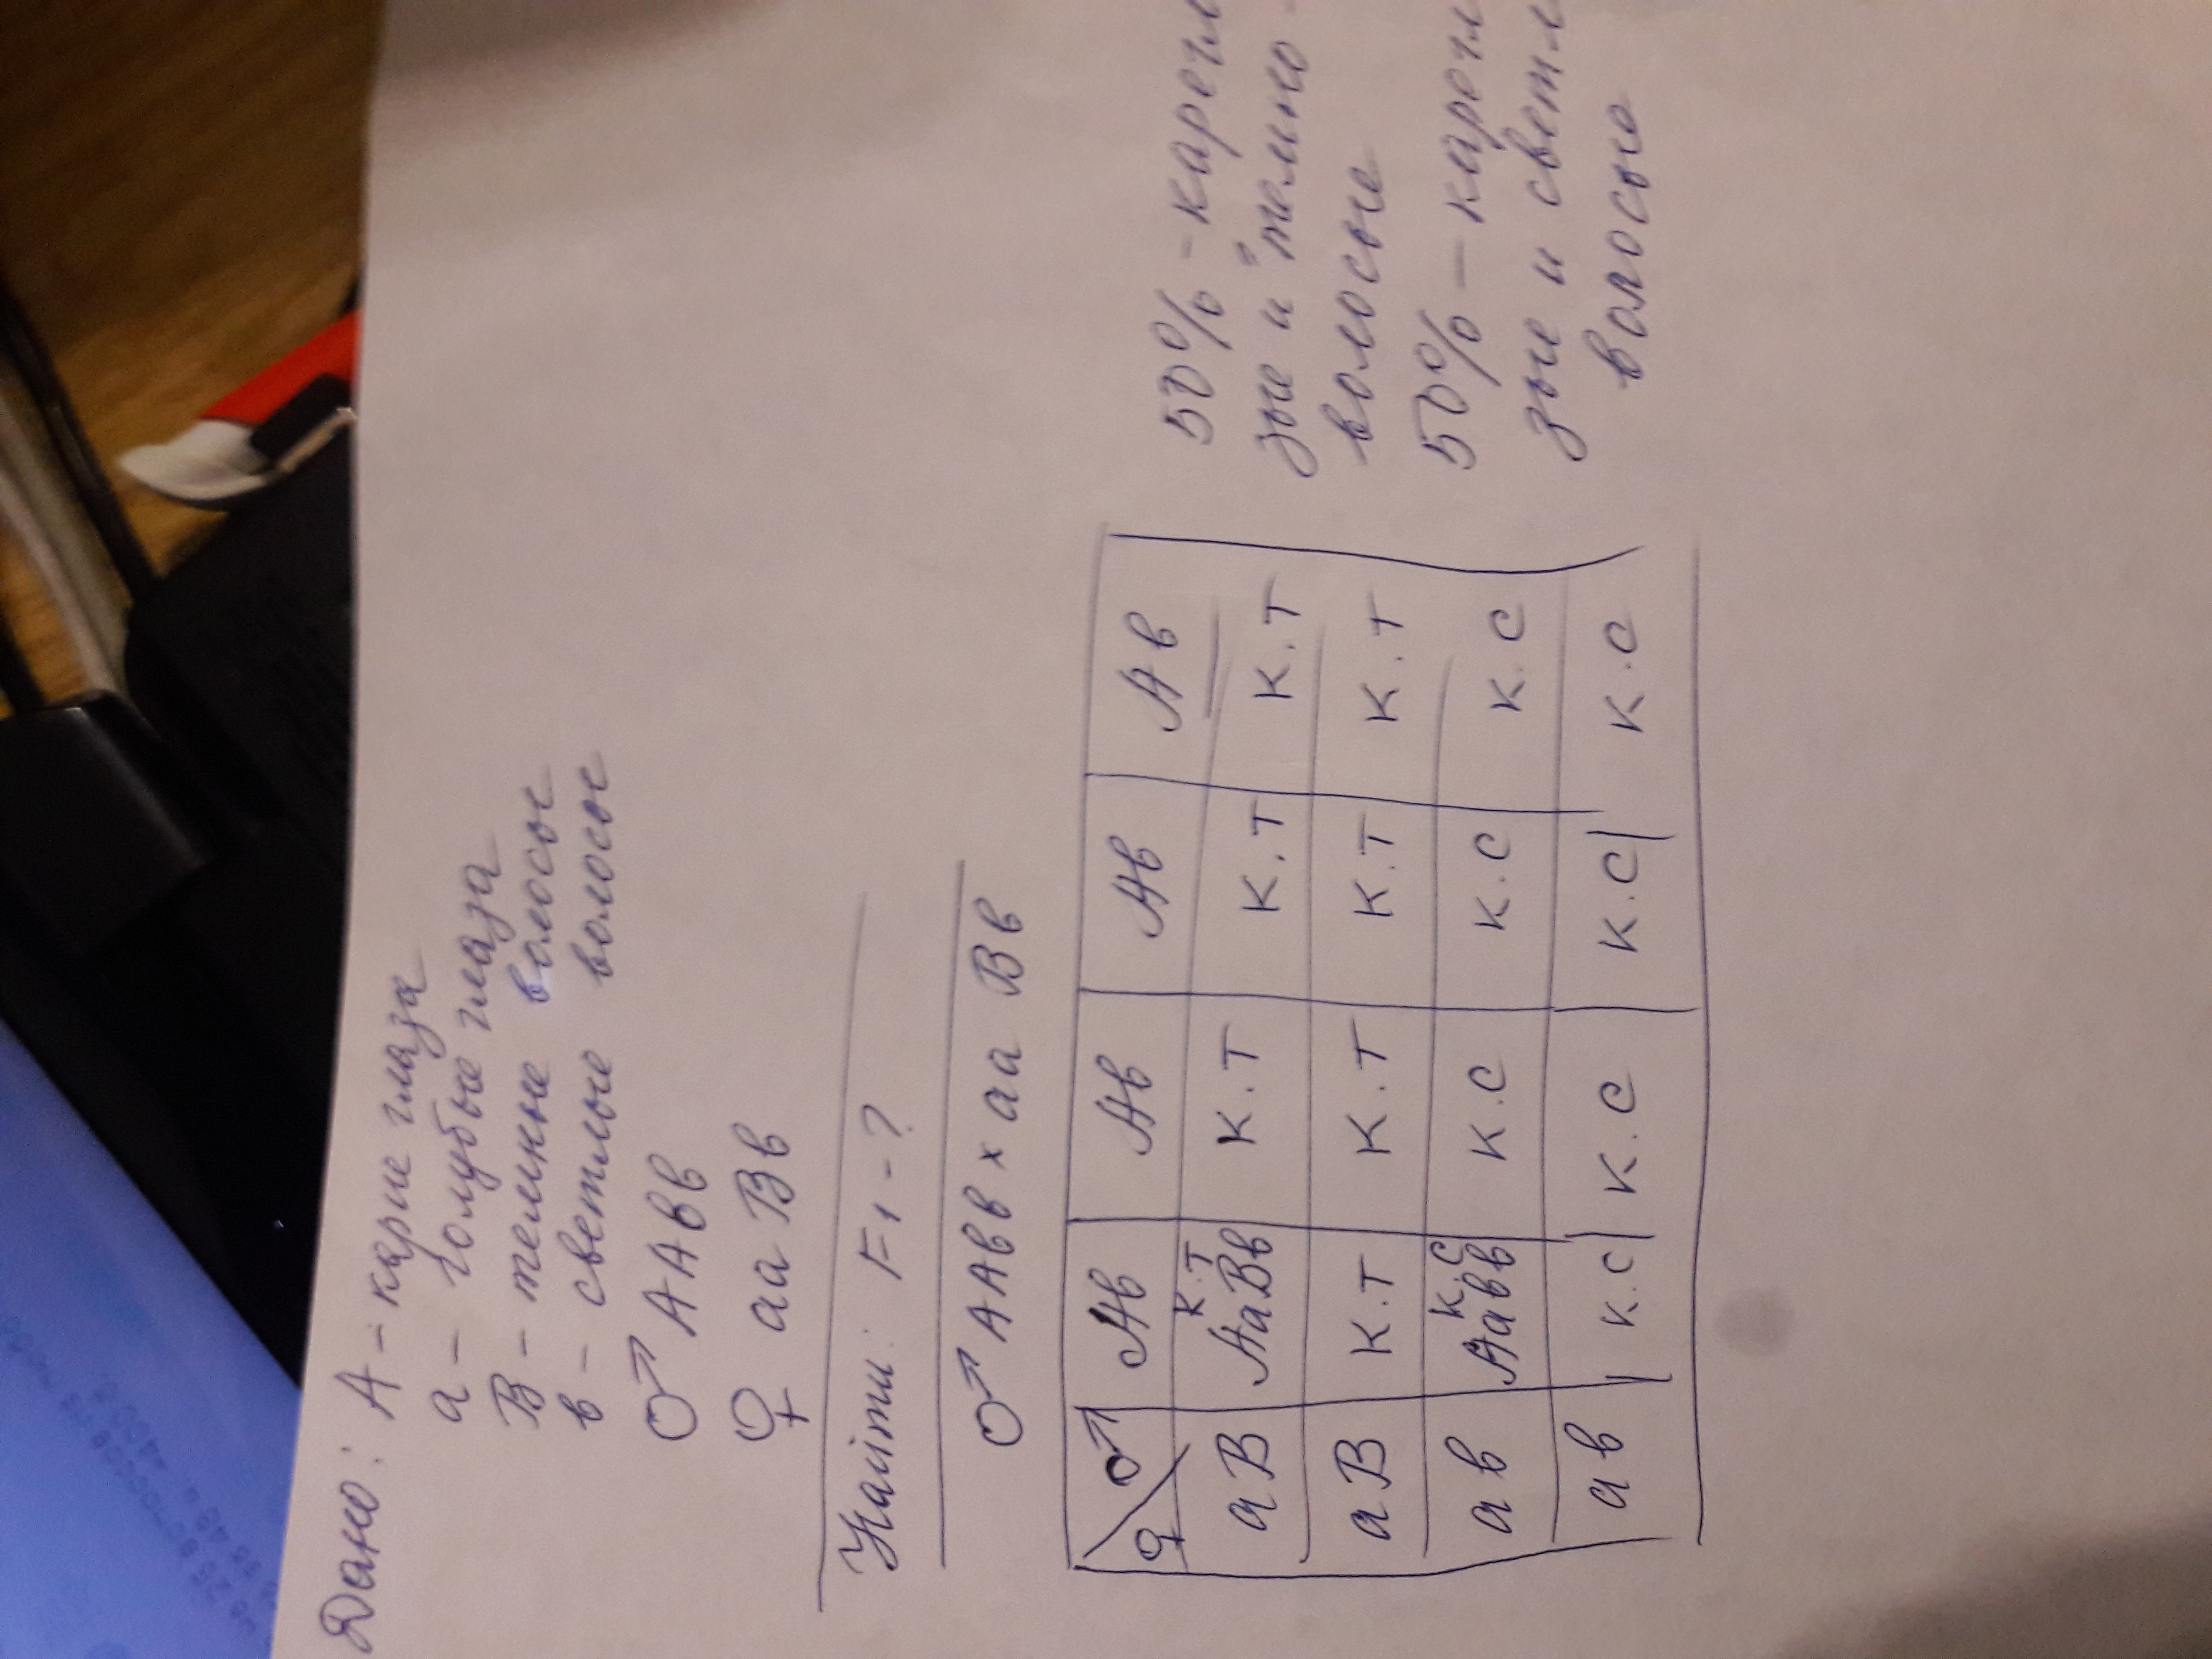 26 вопросов
48 ч. -400
Дано: А - карие глаза
а - голубые глаза
В - темные волосы
в - светлые волосы
♂ ААвв
♀ аа Вв
Найти: F1 - ?
♂ ААвв × аа Вв
♀ ♂ Ав Ав Ав Ав
к.т
аВ АаВв к.т к.т к.т
аВ к.т к.т к.т к.т
к.с
ав Аавв к.с к.с к.с
ав к.с к.с к.с к.с
50% - карегл
зые и темно -
волосые
50% - карегл
зые и светл
волосые